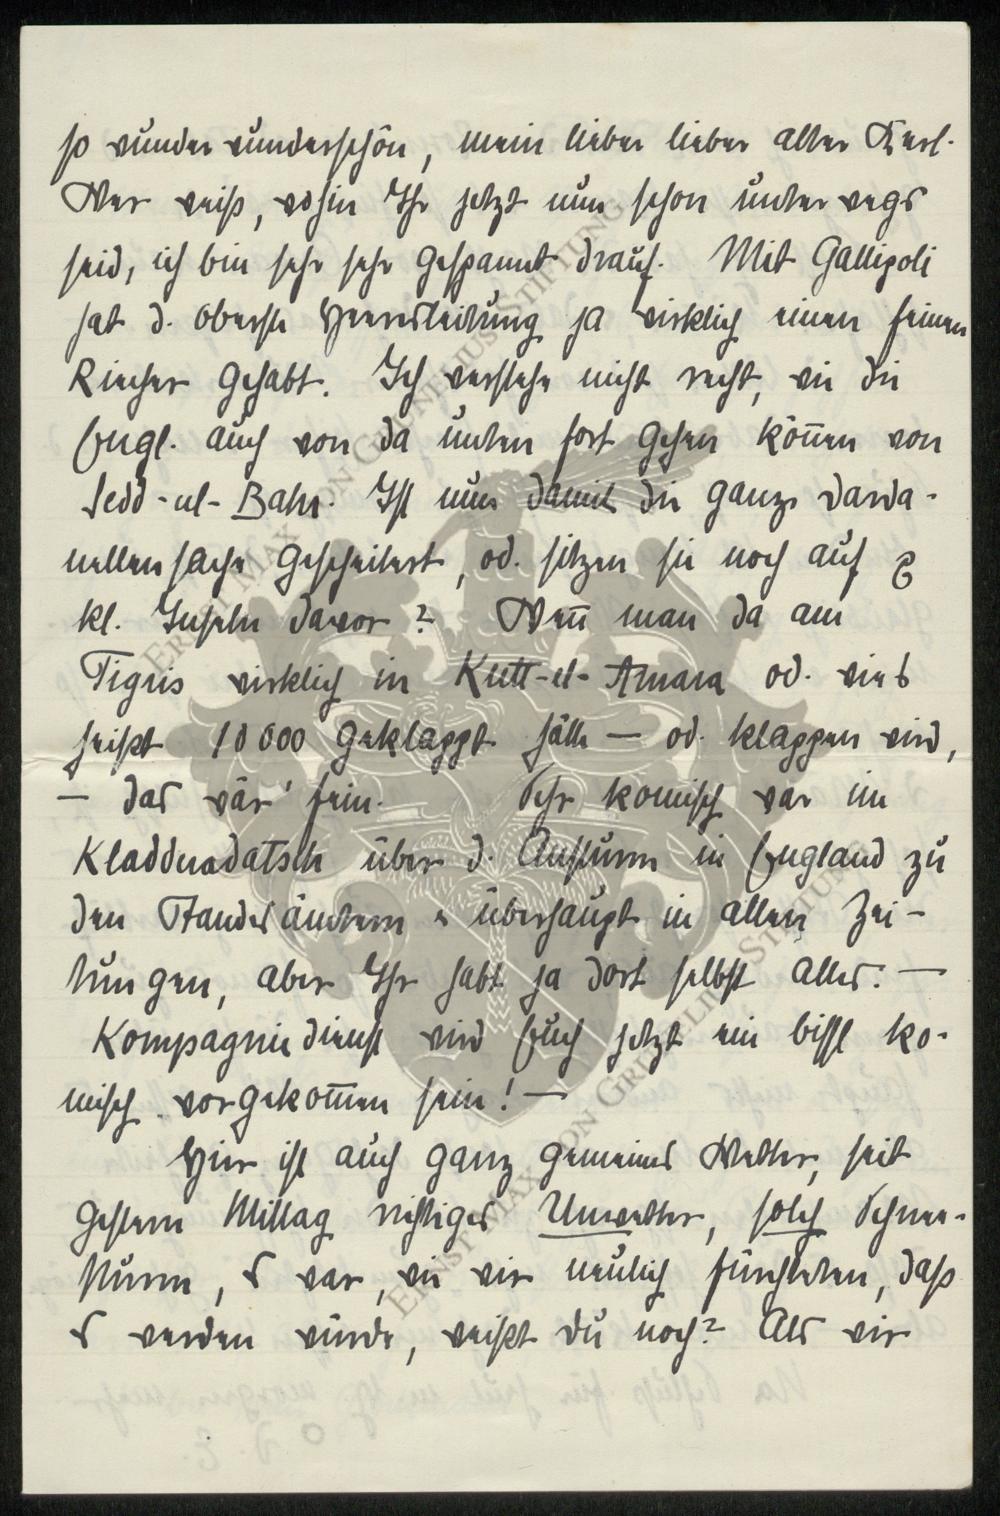 so wunder wunderschön, mein lieber lieber alter Kerl.
Wer weiß, wohin Ihr jetzt nun schon unterwegs
seid, ich bin sehr sehr gespannt drauf. Mit Gallipoli
hat d. oberste Heeresleitung ja wirklich einen feinen
Riecher gehabt. Ich verstehe nicht recht, wie die
Engl. auch von da unten fort gehen können von
Sedd-ul-Bahr. Ist nun damit die ganze Darda-
nellensache gescheitert, od. sitzen sie noch auf
kl. Inseln davor? Wenn man da am
Tigris wirklich in Kutt-el-Amara od. wies
heißt 10000 geklappt hätte — od. klappen wird,
— das wär' fein. Sehr komisch war im
Kladderadatsch über d. Ansturm in England zu
den Standesämtern u überhaupt in allen Zei-
tungen, aber Ihr habt ja dort selbst alles. —
Kompagniedienst wird Euch jetzt ein bissl ko-
misch vorgekommen sein! —
Hier ist auch ganz gemeines Wetter, seit
gestern Mittag richtiges Unwetter, solch Schnee-
sturm, s war, wie wir neulich fürchteten, daß
s werden würde, weißt Du noch? Als wir
ERNST MAX VON GRUNELIUS STIFTUNG
ERNST MAX VON GRUNELIUS STIFTUNG